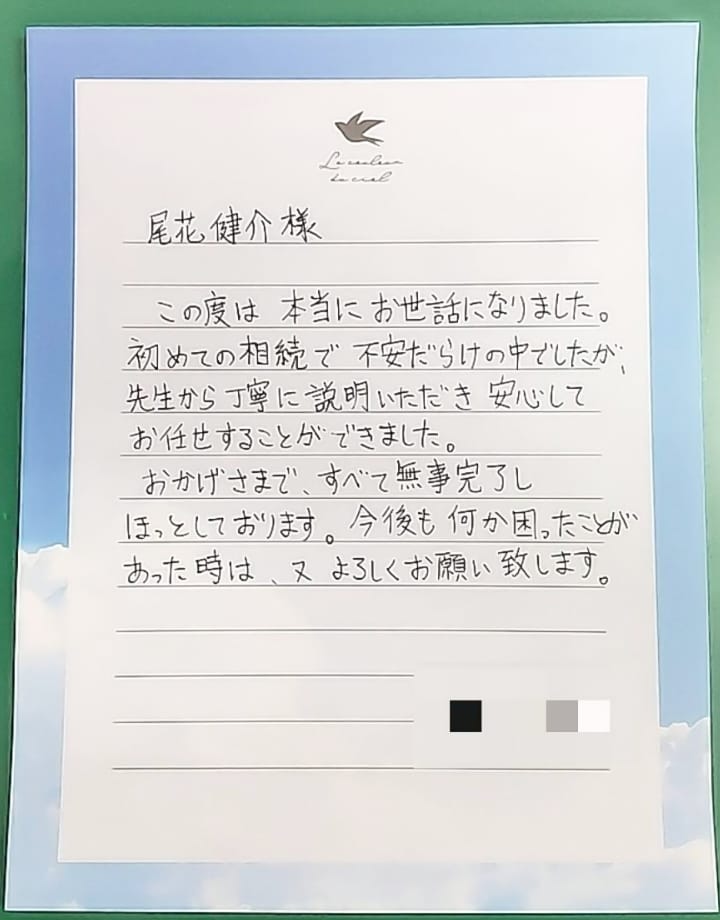 La couleur
du ciel
尾花健介様
この度は 本当に お世話になりました。
初めての相続で 不安だらけの中でしたが、
先生から丁寧に説明いただき 安心して
お任せすることができました。
おかげさまで、すべて無事完了し
ほっとしております。今後も何か困ったことが
あった時は、又 よろしくお願い致します。